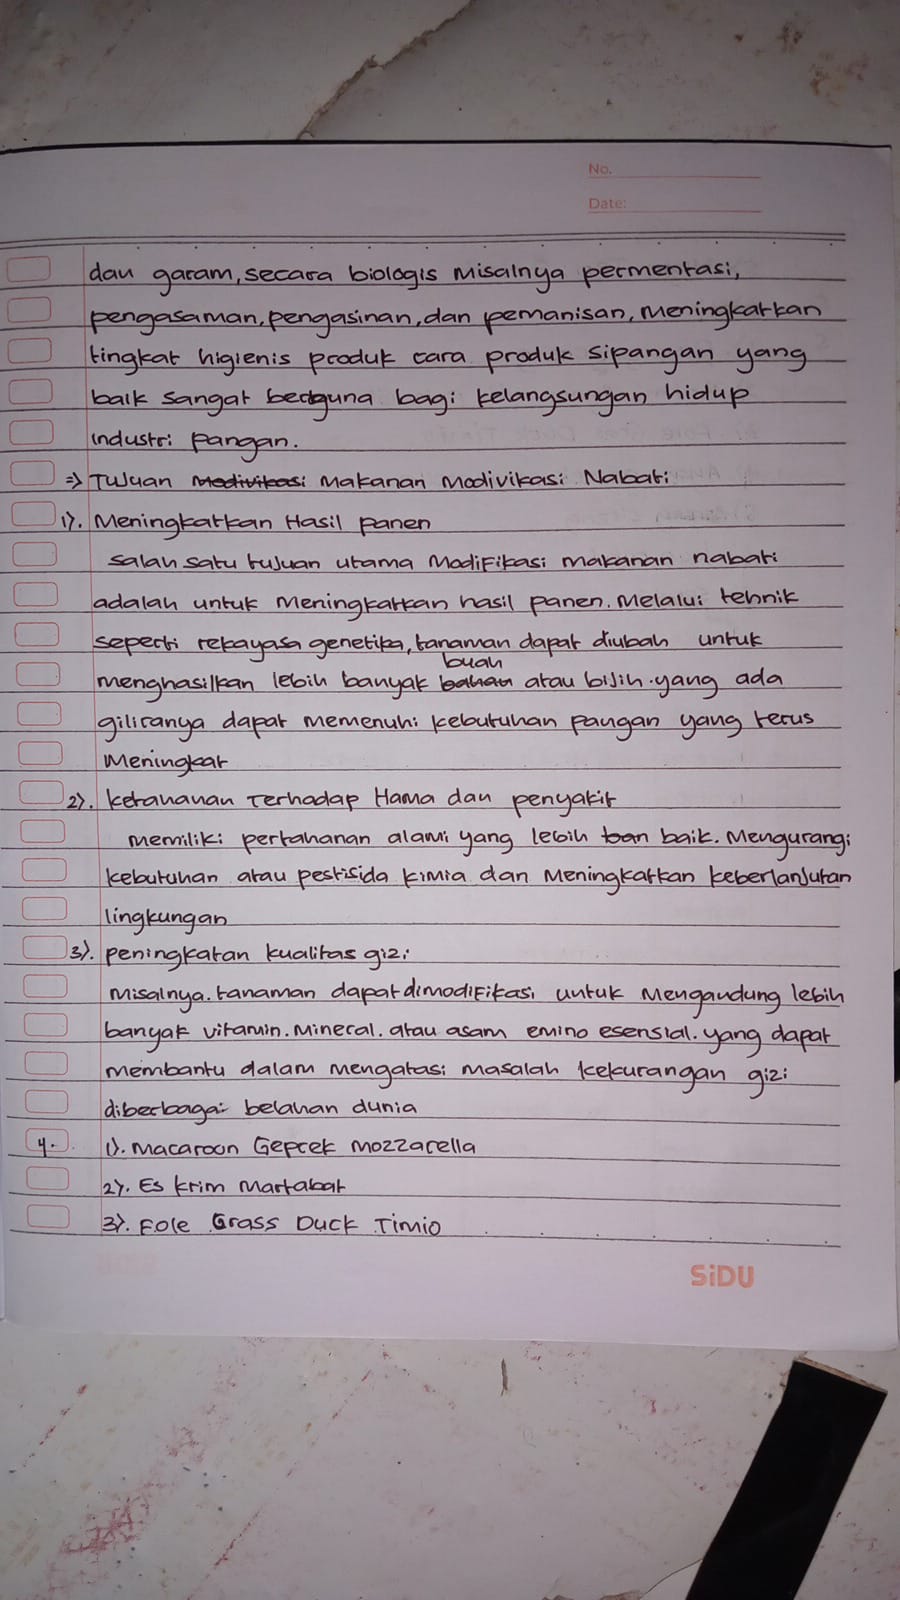 No.
Date:
dan garam, secara biologis misalnya permentasi,
pengasaman, pengasinan, dan pemanisan, meningkatkan
tingkat higienis produk cara produk sipangan yang
baik sangat berguna bagi kelangsungan hidup
industri pangan.
=> Tujuan Medivikasi Makanan Modivikasi Nabati
1). Meningkatkan Hasil panen
salah satu tujuan utama Modifikasi makanan nabati
adalah untuk meningkatkan hasil panen. Melalui tehnik
seperti rekayasa genetika, tanaman dapat diubah untuk
buah
menghasilkan lebih banyak bahan atau bijih. yang ada
giliranya dapat memenuhi kebutuhan pangan yang terus
Meningkat
2). ketahanan Terhadap Hama dan penyakit
memiliki pertahanan alami yang lebih ban baik. Mengurangi
kebutuhan atau pestisida kimia dan Meningkatkan keberlanjutan
lingkungan
3). peningkatan kualitas gizi
misalnya. tanaman dapat dimodifikasi untuk mengandung lebih
banyak vitamin. Mineral. atau asam emino esensial. yang dapat
membantu dalam mengatasi masalah kekurangan gizi
diberbagai belahan dunia
4. 1). Macaroon Geprek mozzarella
2). Es krim Martabat
3). Fole Grass Duck Timio
SiDU